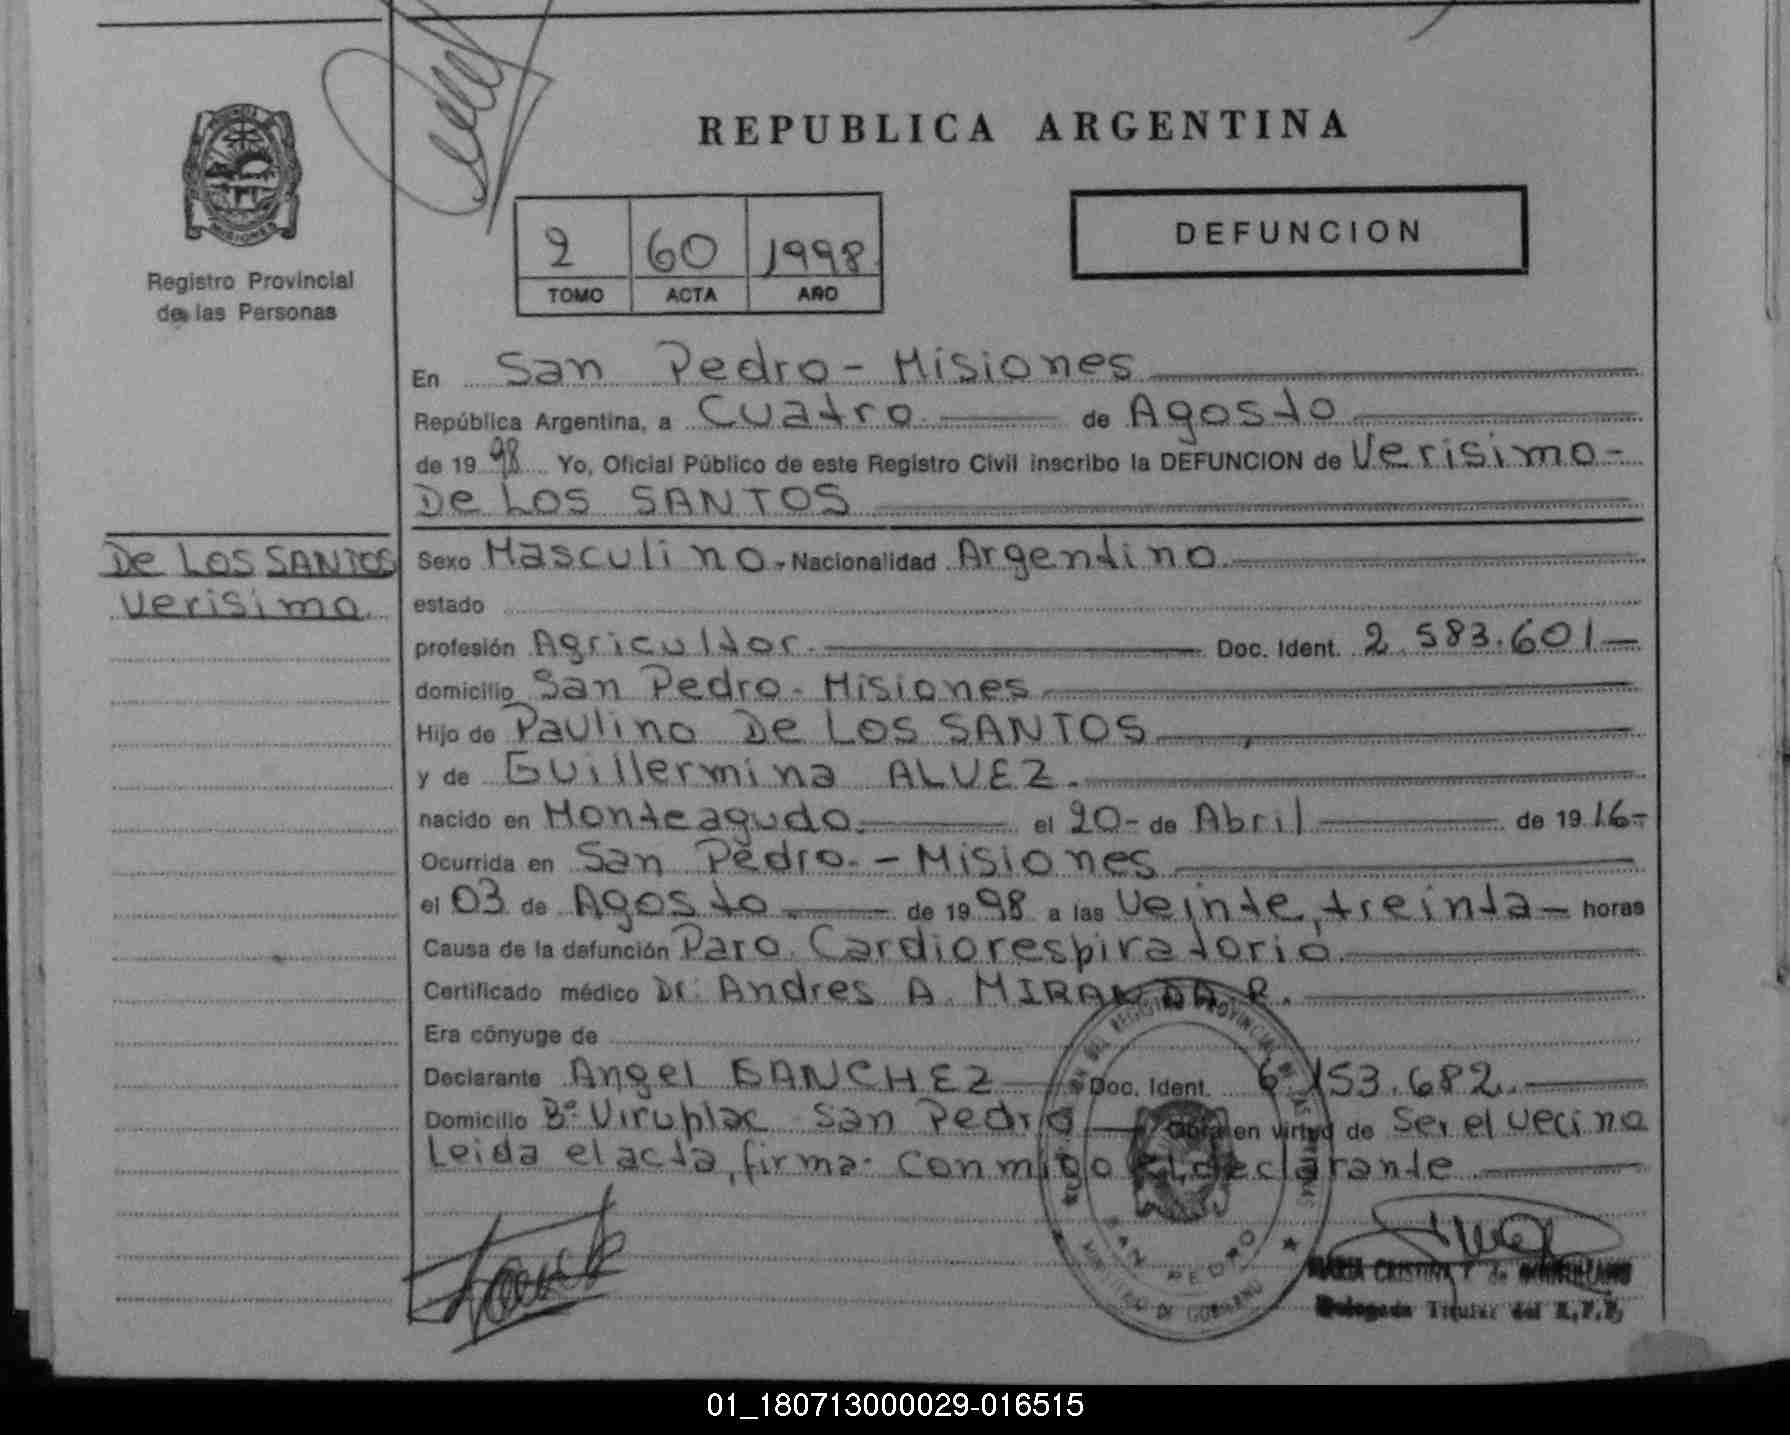 REPUBLICA ARGENTINA
MISIONES
Registro Provincial
de las Personas
2 60 1998
TOMO ACTA AÑO
DEFUNCION
En San Pedro - Misiones
República Argentina, a Cuatro de Agosto
de 1998 Yo, Oficial Público de este Registro Civil inscribo la DEFUNCION de Verisimo-
De LOS SANTOS
De LOS SANTOS
Verisimo.
Sexo Masculino - Nacionalidad Argentino
estado
profesión Agricultor. Doc. Ident. 2.583.601-
domicilio San Pedro - Misiones
Hijo de Paulino De LOS SANTOS
y de Guillermina ALVEZ.
nacido en Monteagudo. el 20- de Abril de 1916-
Ocurrida en San Pedro. - Misiones
el 03 de Agosto de 1998 a las Veinte, treinta - horas
Causa de la defunción Paro Cardiorespiratorio
Certificado médico Dr. Andres A. MIRANDA R.
Era cónyuge de
Declarante Angel SANCHEZ Doc. Ident. 6.153.682.
Domicilio Bº Viruplac San Pedro Obra en virtud de Ser el vecino
Leida el acta, firma conmigo el declarante
REGISTRO PROVINCIAL DE LAS PERSONAS
SAN PEDRO
MINISTERIO DE GOBIERNO
MARIA CRISTINA de
Delegada Titular del R.P.P.
01_180713000029-016515